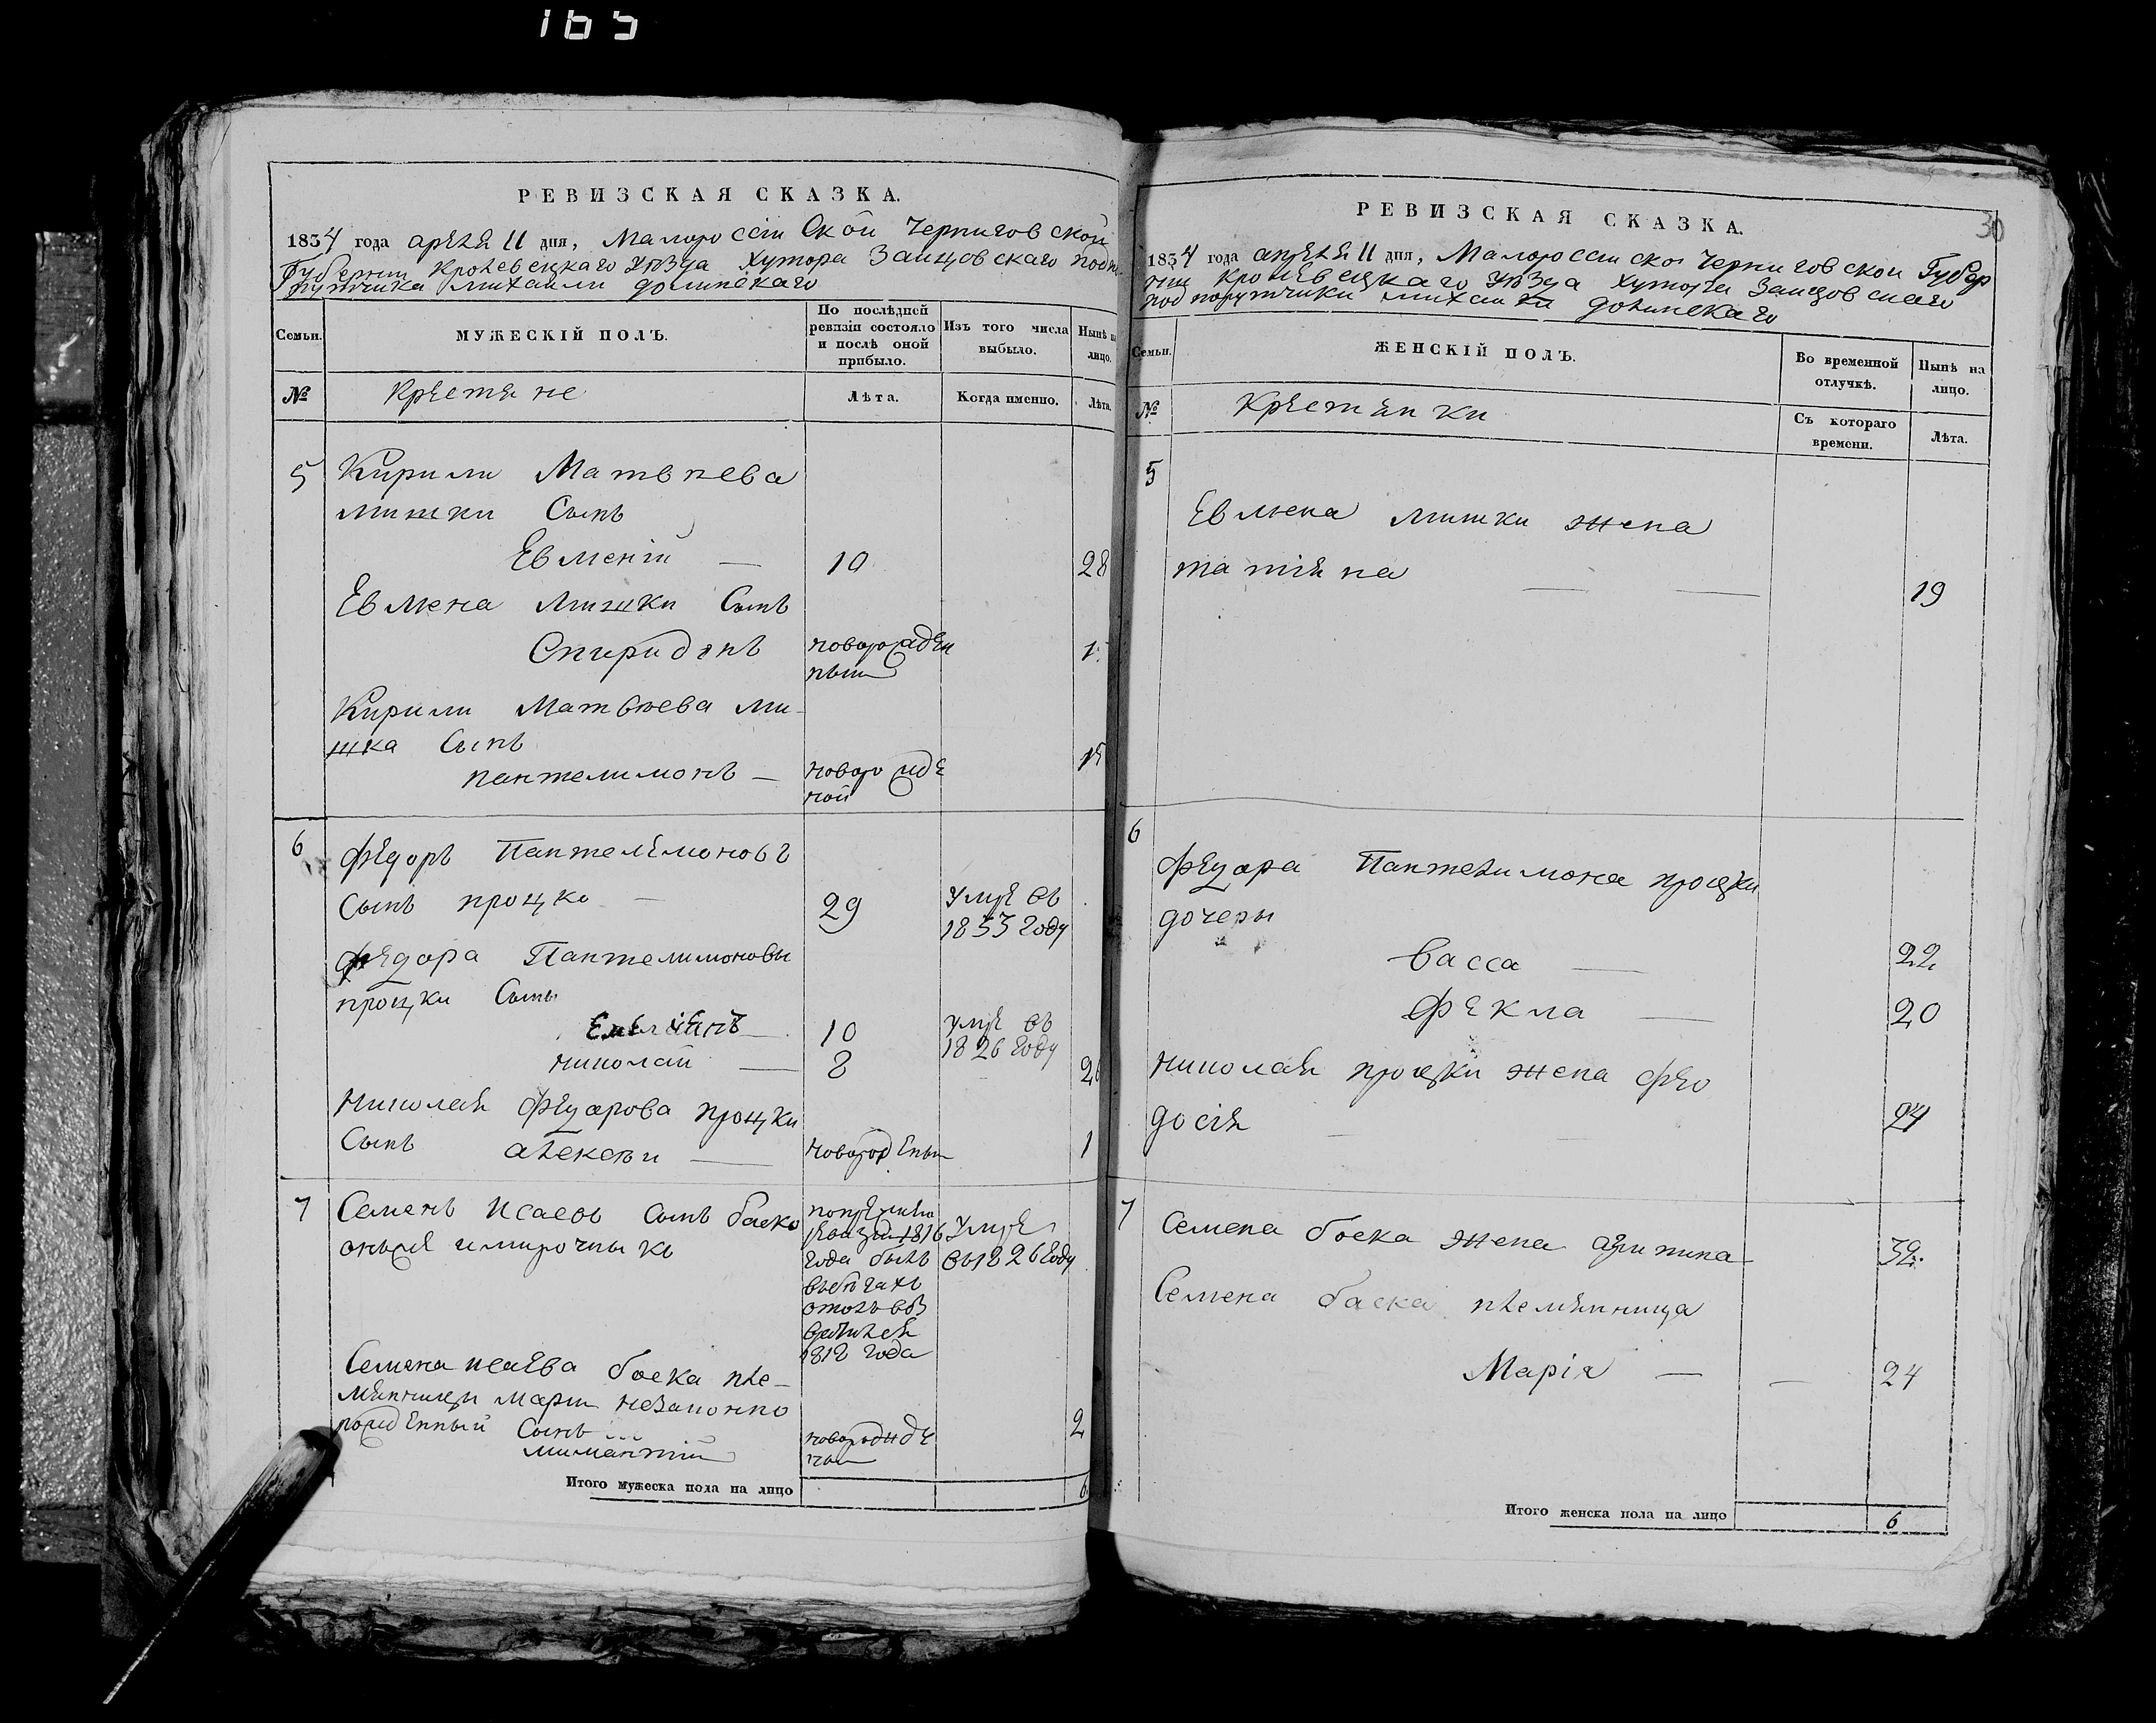 165
РЕВИЗСКАЯ СКАЗКА.
1834 года апреля 11 дня, Малороссійской Черниговской
Губерніи Кролевецкаго уѣзда Хутора Заицовскаго подпо
рутчика михаили долинскаго
Семьи.
МУЖЕСКІЙ ПОЛЪ.
По послѣдней ревизіи состояло и послѣ оной прибыло.
Изъ того числа выбыло.
Нынѣ на лицо.
№
Крестяне
Лѣта.
Когда именно.
Лѣта.
5 Кирили Матвѣева
мишки Сынъ
Евменій — 10 28
Евмена мишки Сынъ
Спиридонъ новорожден 1
ный
Кирили Матвѣева ми-
шка Сынъ
пантелимонъ — новорожде 15
ной
6 федоръ Пантелемоновъ
Сынъ процко — 29 Умре въ
1833 году
федора Пантелимоновы
процки Сыны
Емеліянъ — 10 умре въ
1826 году
николай — 8 26
николая федорова процки
Сынъ алексѣи — новородены 1
7 Семенъ Исаевъ сынъ баско
1816 Умре
года былъ въ 1826 году
1818 года
Семена исаева боска пле-
мянницы марии незаконно
рожденный Сынъ 2
новорожде
ны
Итого мужеска пола на лицо 6
30
РЕВИЗСКАЯ СКАЗКА.
1834 года апреля 11 дня, Малороссииской Черниговской Губер
ніи Кролевецкаго уѣзда Хутора Заицовскаго
подпорутчики михаили долинскаго
Семьи.
ЖЕНСКІЙ ПОЛЪ.
Во временной отлучкѣ.
Нынѣ на лицо.
№
Крестянки
Съ котораго времени.
Лѣта.
5
Евмена мишки жена
татіяна — — 19
6
федора Пантелимона процки
дочеры
васса — 22
фекла — 20
николая процки жена фео
досія 24
7 Семена боска жена агрипина 32.
Семена баска племянница
Марія — — 24
Итого женска пола на лицо 6